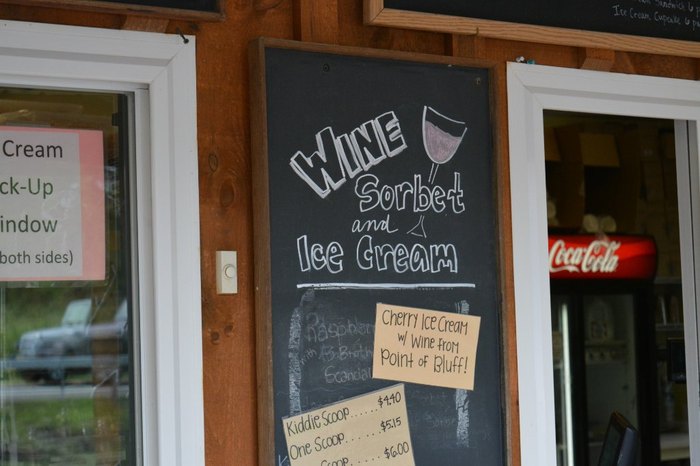 Sandwich
Ice Cream, Cupcake
Cream
ck-Up
indow
both sides)
WINE
Sorbet
and
Ice Cream
Coca-Cola
Cherry Ice Cream
w/ Wine from
Point of Bluff!
Raspberry
Scandal
Kiddie Scoop.....$4.40
One Scoop.....$5.15
Scoop.....$6.00